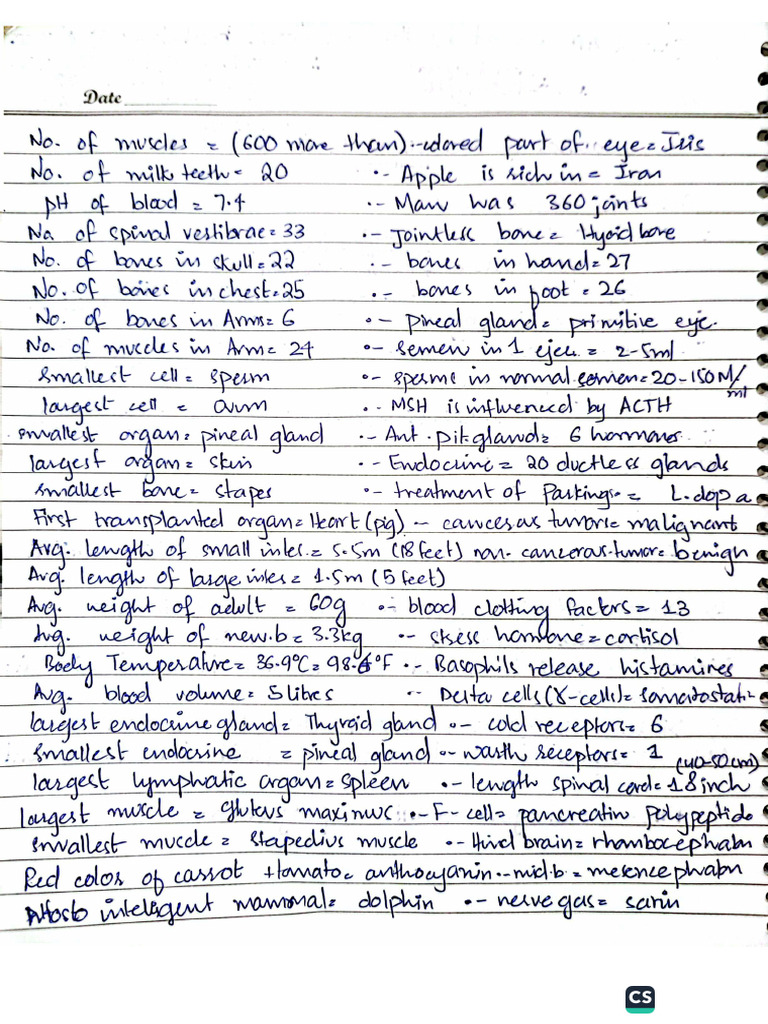 Date
No. of muscles = (600 more than) ·- colored part of eye = Iris
No. of milk teeth = 20 ·- Apple is rich in = Iron
pH of blood = 7.4 ·- Man was 360 joints
No. of spinal vestibrae = 33 ·- Jointless bone = Hyoid bone
No. of bones in skull = 22 ·- bones in hand = 27
No. of bones in chest = 25 ·- bones in foot = 26
No. of bones in Arms = 6 ·- pineal gland = primitive eye.
No. of muscles in Arm = 24 ·- semen in 1 ejec. = 2-5ml
smallest cell = sperm ·- sperms in normal semen = 20-150M/ml
largest cell = ovum ·- MSH is influenced by ACTH
smallest organ = pineal gland ·- Ant. pit. gland = 6 hormones
largest organ = skin ·- Endocrine = 20 ductless glands
smallest bone = stapes ·- treatment of Parkings. = L.dopa
First transplanted organ = Heart (pig) - cancerous tumor = malignant
Avg. length of small intes. = 5.5m (18 feet) non-cancerous-tumor = benign
Avg. length of large intes = 1.5m (5 feet)
Avg. weight of adult = 60g ·- blood clotting factors = 13
Avg. weight of new.b = 3.3kg ·- stress hormone = cortisol
Body Temperature = 36.9°C = 98.6°F ·- Basophils release histamines
Avg. blood volume = 5 litres ·- Delta cells (γ-cells) = somatostatin
largest endocrine gland = Thyroid gland ·- cold receptors = 6
smallest endocrine = pineal gland ·- warth receptors = 1
largest lymphatic organ = spleen ·- length spinal cord = 18 inch (40-50cm)
largest muscle = Gluteus maximus ·- F-cell = pancreatin polypeptide
smallest muscle = stapedius muscle ·- Hind brain = rhombocephaln
Red color of carrot + tomato = anthocyanin ·- mid.b = mesencephaln
Most intelligent mammal = dolphin ·- nerve gas = sarin
CS